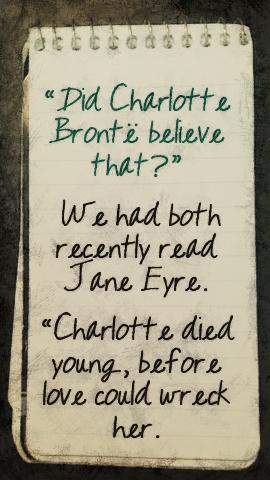 “Did Charlotte
Brontë believe
that?”
We had both
recently read
Jane Eyre.
“Charlotte died
young, before
love could wreck
her.